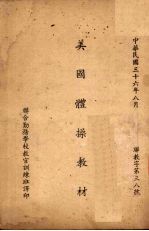 中華民國三十六年八月
聯教字第三八號
美國體操教材
聯合勤務學校教官訓練班譯印